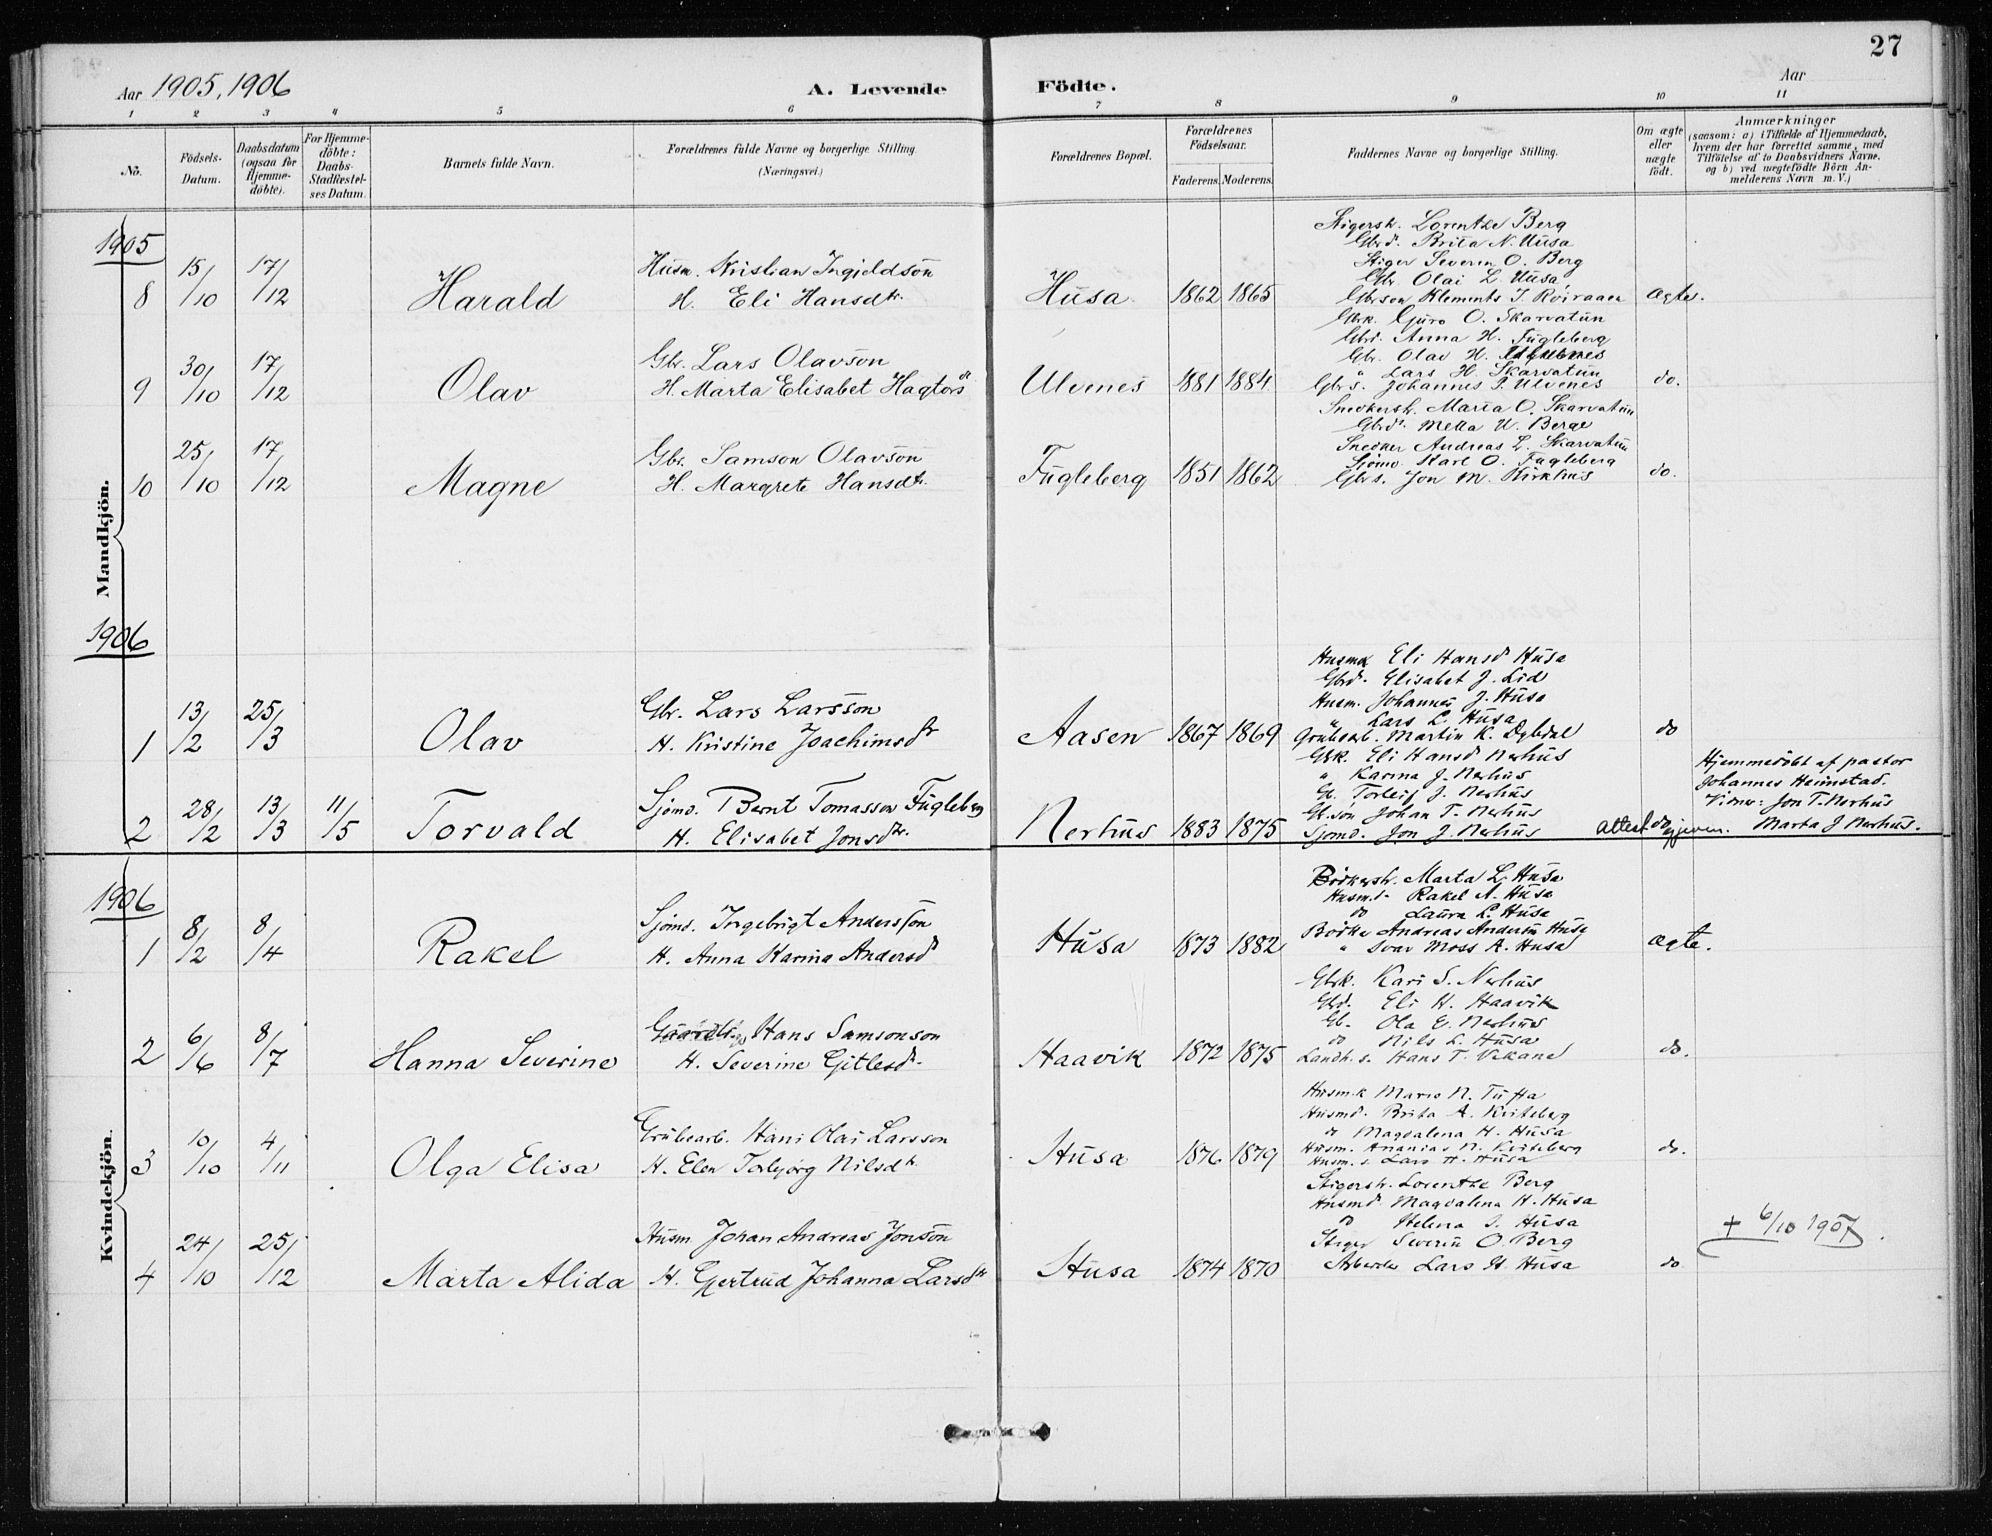 27
Aar 1905, 1906
A. Levende Födte.
Aar
1 2 3 4 5 6 7 8 9 10 11
No.
Födsels-Datum.
Daabsdatum (ogsaa for Hjemme-döbte).
For Hjemme-döbte: Daabs-Stadfæstel-ses Datum.
Barnets fulde Navn.
Forældrenes fulde Navne og borgerlige Stilling.
(Næringsvei.)
Forældrenes Bopæl.
Forældrenes Födselsaar.
Faderens. Moderens.
Faddernes Navne og borgerlige Stilling.
Om ægte eller uægte födt.
Anmærkninger
(saasom: a) i Tilfælde af Hjemmedaab,
hvem der har forrettet samme, med
Tilföielse af to Daabsvidners Navne,
og b) ved uægtefödte Börn An-
melderens Navn m. V.)
Mandkjön.
1905
8 15/10 17/12 Harald
Husm. Kristian Ingjeldson
H. Eli Hansdtr.
Husa 1862 1865
Stigersk. Lorentze Berg
Gbrd. Brita N. Husa
Stiger Severin O. Berg
Gbr. Olai L. Husa
Gbrsøn Klements J. Röiraaen
ægte.
9 30/10 17/12 Olav
Gbr. Lars Olavson
H. Marta Elisabet Hagtorsdr
Ulvenes 1881 1884
Gbrk. Guro O. Skarvatun
Gbrd. Anna H. Fugleberg
Gbr. Olav H.
" Lars H. Skarvatun
Gbrs. Johannes P. Ulvenes
do.
10 25/10 17/12 Magne
Gbr. Samson Olavson
H. Margrete Hansdtr.
Fugleberg 1851 1862
Snedkersk. Maria O. Skarvatun
Gbrdr. Metta U. Berge
Snedker Andreas L. Skarvatun
Sjömd. Karl O. Fugleberg
Gbrs. Jon M. Kirkhus
do.
1906
1 13/2 25/3 Olav
Gbr. Lars Larsson
H. Kristine Joachimsdr
Aasen 1867 1869
Husmk Eli Hansd Husa
Gbrd. Elisabet J. Lid
Husm. Johannes J. Husa
" Lars L. Husa
Grubearb. Martin K. Dybdal
do
2 28/2 13/3 11/5 Torvald
Sjömd. Bernt Tomasson Fugleberg
H. Elisabet Jonsdtr.
Nerhus 1883 1875
Gbk. Eli Hansd Nerhus
" Karina J. Nerhus
Gb. Torleif J. Nerhus
Gb.søn Johan T. Nerhus
Sjömd. Jon J. Nerhus
do
attest given.
Hjemmedöbt af pastor
Johannes Heimstad.
Vidner: Jon T. Nerhus
Marta J Nerhus.
Kvindekjön.
1906
1 8/2 8/4 Rakel
Sjömd. Ingebrigt Andersson
H. Anna Karina Andersd
Husa 1873 1882
Bödkersk. Marta L. Husa
Husmd. Rakel A. Husa
do Laura L. Husa
Bödker Andreas Anders Husa
" svar Moss A. Husa
ægte.
2 6/6 8/7 Hanna Severine
Hans Samsonson
H. Severine Gitlesdr.
Haavik 1872 1875
Gbk. Kari S. Nerhus
Gbd. Eli H. Haavik
Gb. Ola E. Nerhus
do Nils L. Husa
Landh.s. Hans T. Vikane
do.
3 10/10 4/11 Olga Elisa
Grubearb. Hans Olai Larsson
H. Elen Torbjörg Nilsdtr.
Husa 1876 1879
Husmk Marie N. Tufta
Husmd. Brita A. Kviteberg
do Magdalena H. Husa
Husm. Ananias N. Kviteberg
Husm.s. Lars H. Husa
do.
4 24/10 25/12 Marta Alida
Husm Johan Andreas Jonson
H. Gjertrud Johanna Larsdtr
Husa 1874 1870
Stigersk. Lorentze Berg
Husmd. Magdalena H. Husa
do Helena S. Husa
Stiger Severin O. Berg
Arbeider Lars Husa
do
† 6/10 1907.